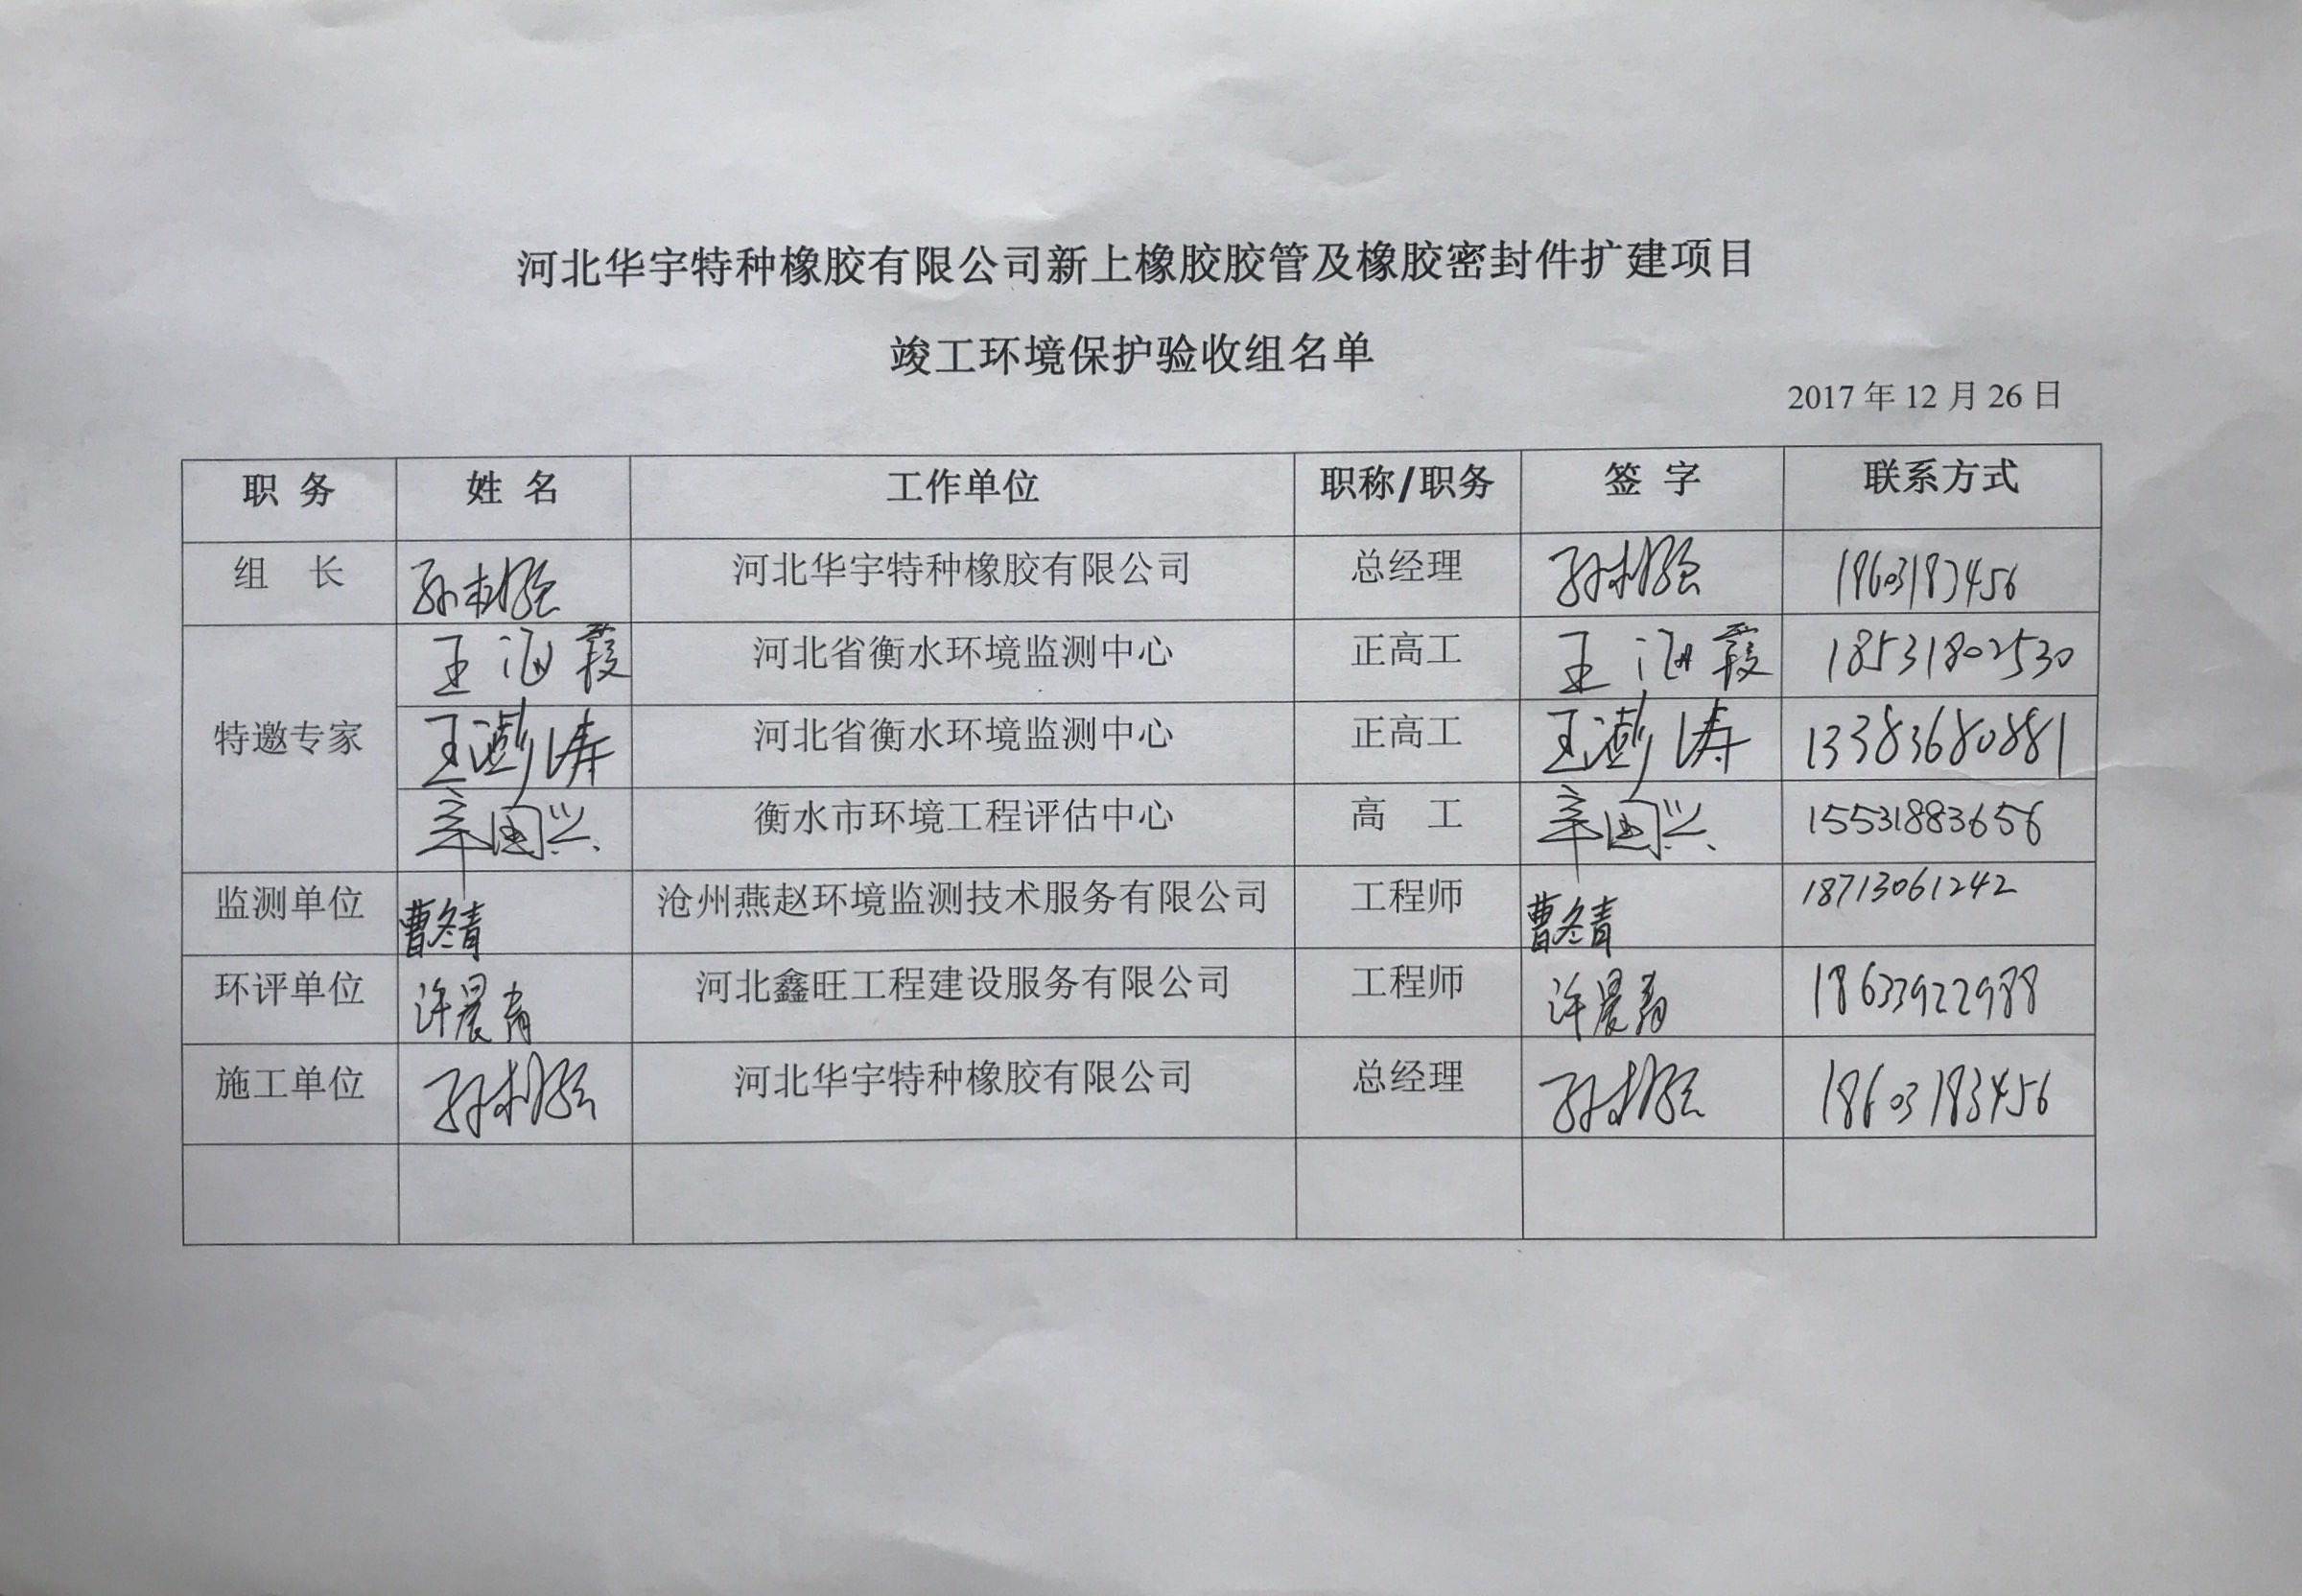 河北华宇特种橡胶有限公司新上橡胶胶管及橡胶密封件扩建项目
竣工环境保护验收组名单
2017年12月26日
职 务 姓 名 工作单位 职称/职务 签 字 联系方式
组 长 孙 河北华宇特种橡胶有限公司 总经理 孙 18603183456
特邀专家
王 河北省衡水环境监测中心 正高工 王 18531802530
王澎涛 河北省衡水环境监测中心 正高工 王澎涛 13383680881
辛国兴 衡水市环境工程评估中心 高 工 辛国兴 15531883656
监测单位 曹冬青 沧州燕赵环境监测技术服务有限公司 工程师 曹冬青 18713061242
环评单位 许晨 河北鑫旺工程建设服务有限公司 工程师 许晨 18633922988
施工单位 孙 河北华宇特种橡胶有限公司 总经理 孙 18603183456